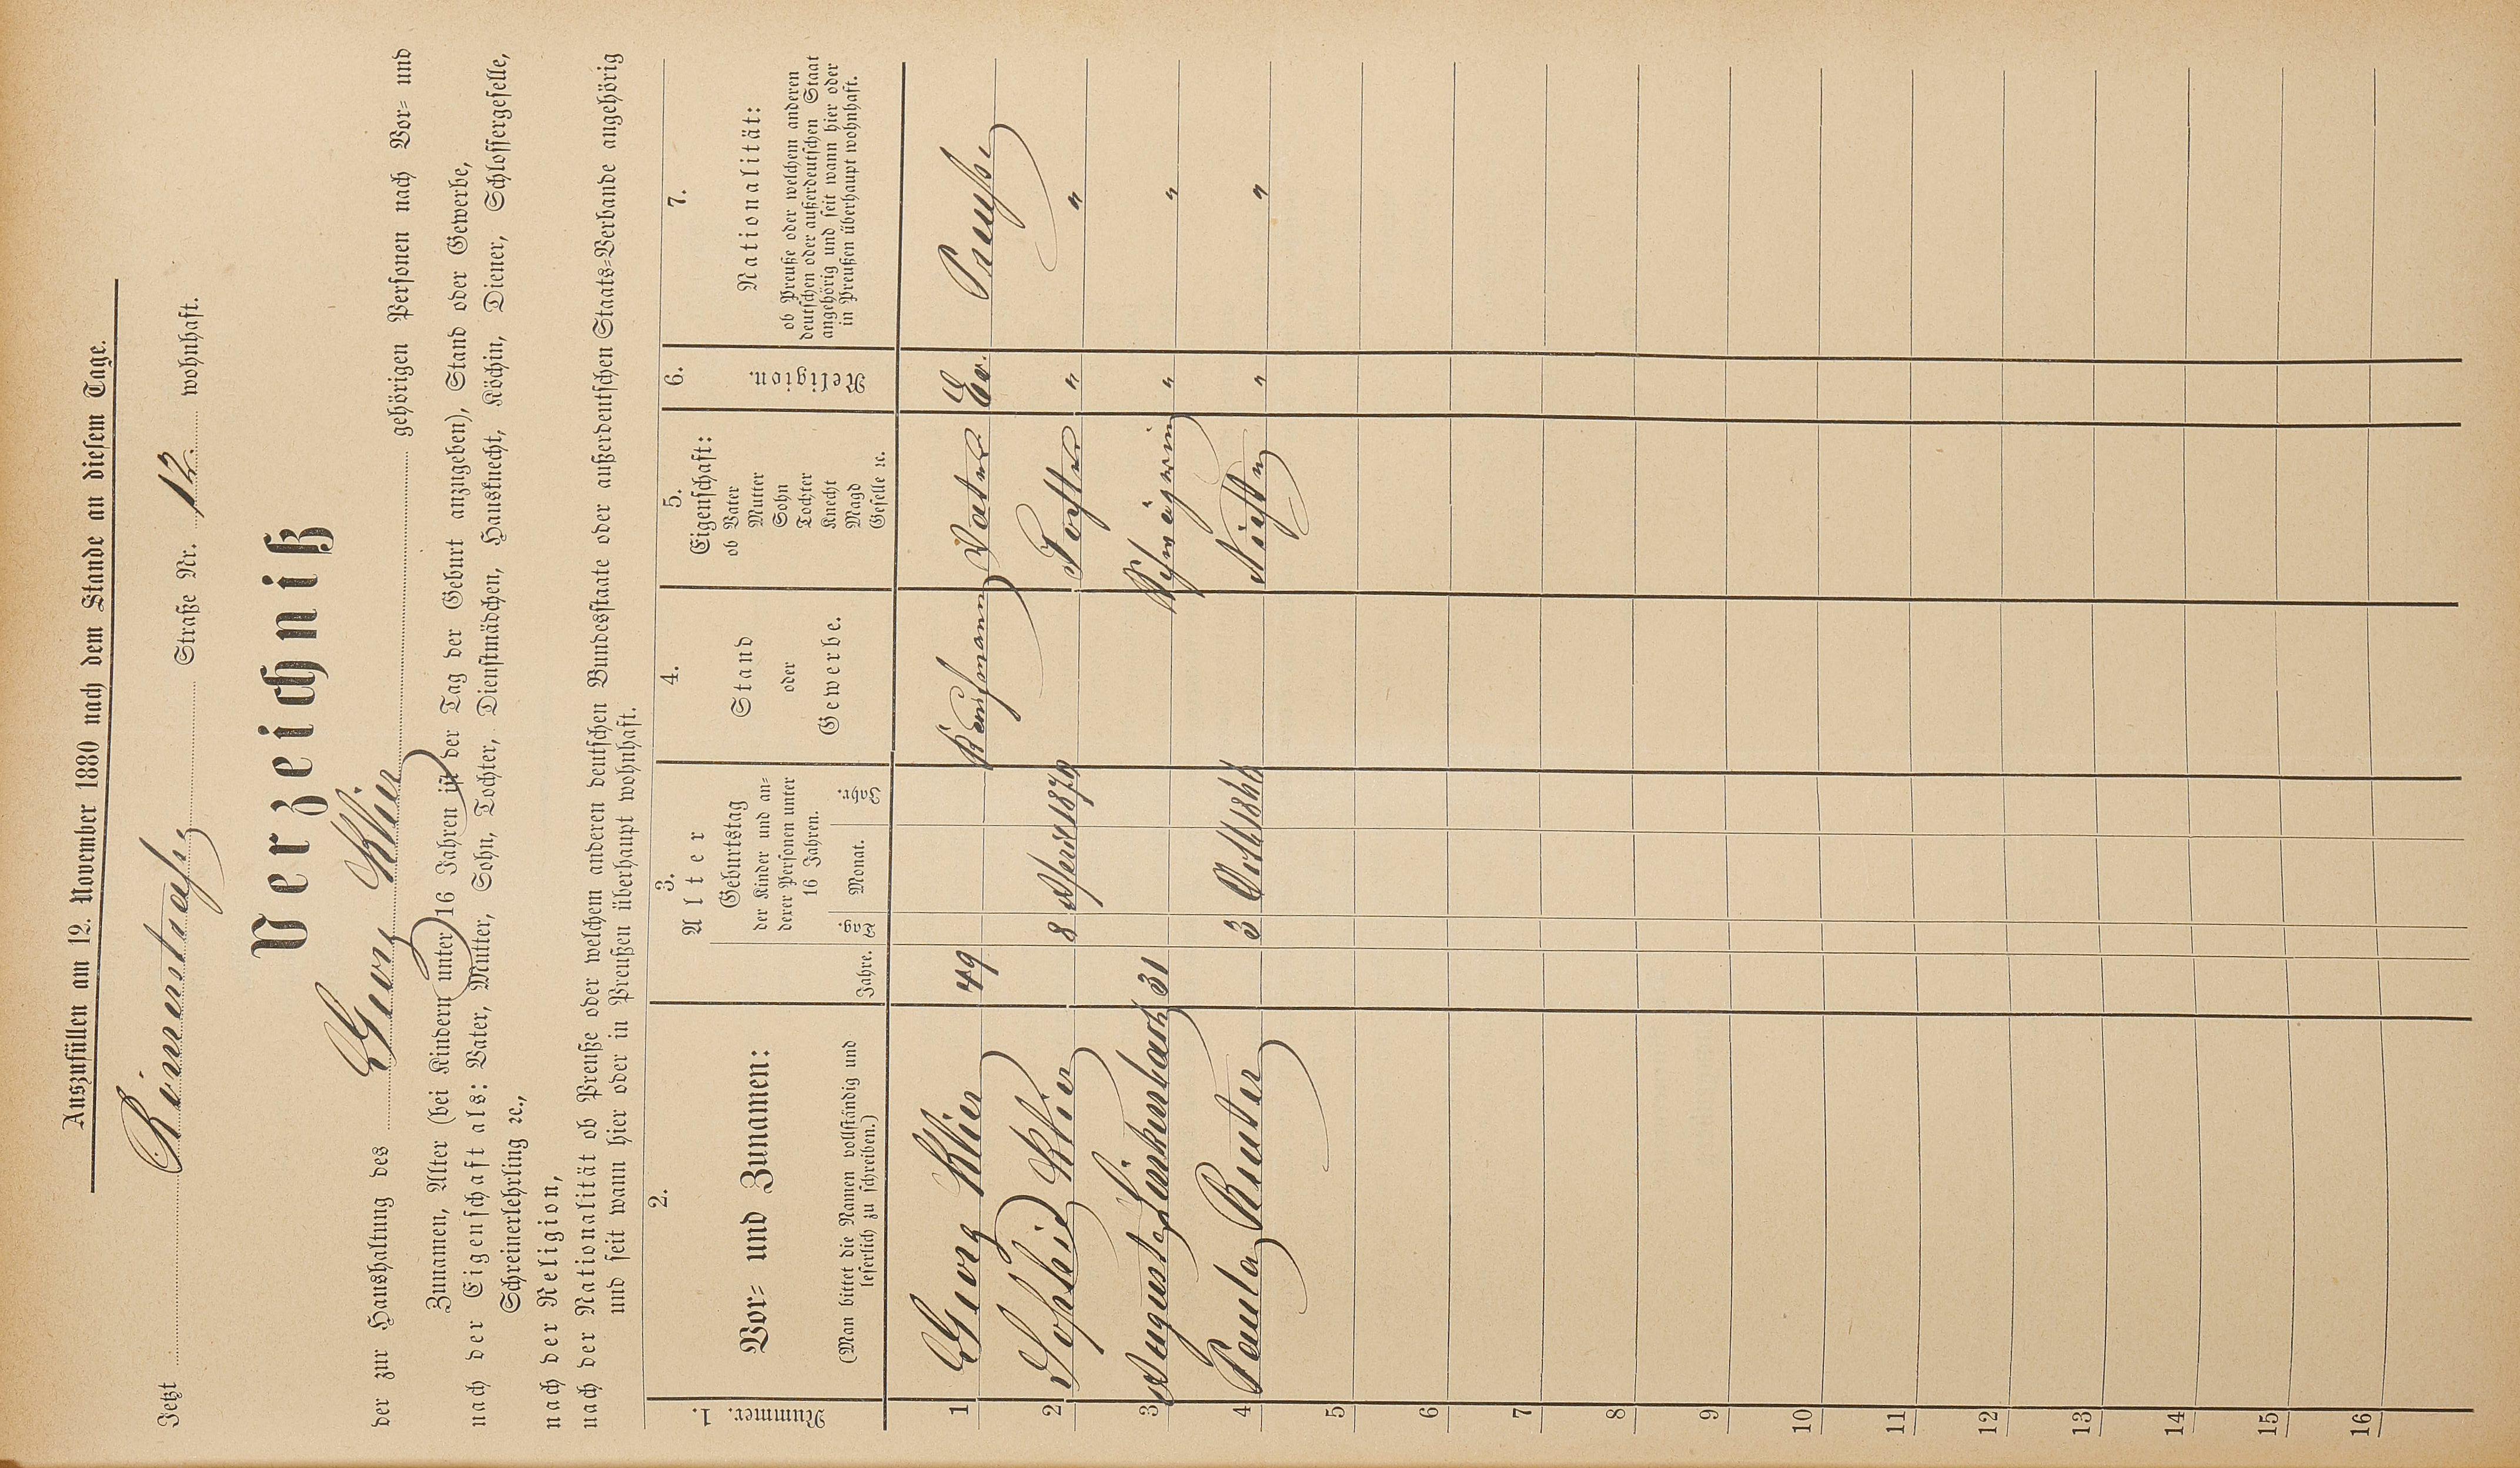 Auszufüllen am 12. November 1880 nach dem Stande an diesem Tage.
Jetzt Römerstraße Straße Nr. 12. wohnhaft.
Verzeichniß
der zur Haushaltung des Georg Klier gehörigen Personen nach Vor- und
Zunamen, Alter (bei Kindern unter 16 Jahren ist der Tag der Geburt anzugeben), Stand oder Gewerbe,
nach der Eigenschaft als: Vater, Mutter, Sohn, Tochter, Dienstmädchen, Hausknecht, Köchin, Diener, Schlossergeselle,
Schreinerlehrling ꝛc.,
nach der Religion,
nach der Nationalität ob Preuße oder welchem anderen deutschen Bundesstaate oder außerdeutschen Staats-Verbande angehörig
und seit wann hier oder in Preußen überhaupt wohnhaft.
1. Nummer.
2. Vor- und Zunamen:
(Man bittet die Namen vollständig und
leserlich zu schreiben.)
3. Alter
Jahre.
Geburtstag
der Kinder und an-
derer Personen unter
16 Jahren.
Tag. Monat. Jahr.
4. Stand
oder
Gewerbe.
5. Eigenschaft:
ob Vater
Mutter
Sohn
Tochter
Knecht
Magd
Geselle ꝛc.
6. Religion.
7. Nationalität:
ob Preuße oder welchem anderen
deutschen oder außerdeutschen Staat
angehörig und seit wann hier oder
in Preußen überhaupt wohnhaft.
1 Georg Klier 49 Kaufmann Vater Ev. Preuße
2 Sophie Klier 8 April 1879 Tochter " "
3 Auguste Linkenbach 31 Schwägerin " "
4 Paula Reuter 3 Nichte " "
5
6
7
8
9
10
11
12
13
14
15
16